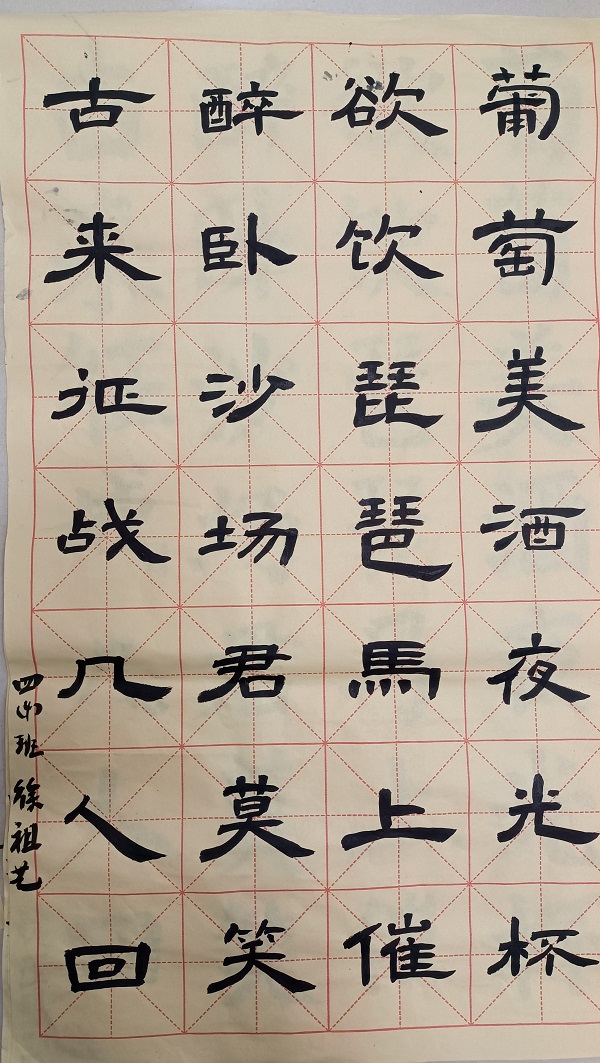 葡萄美酒夜光杯
欲饮琵琶馬上催
醉卧沙场君莫笑
古来征战几人回
四(4)班 徐祖艺